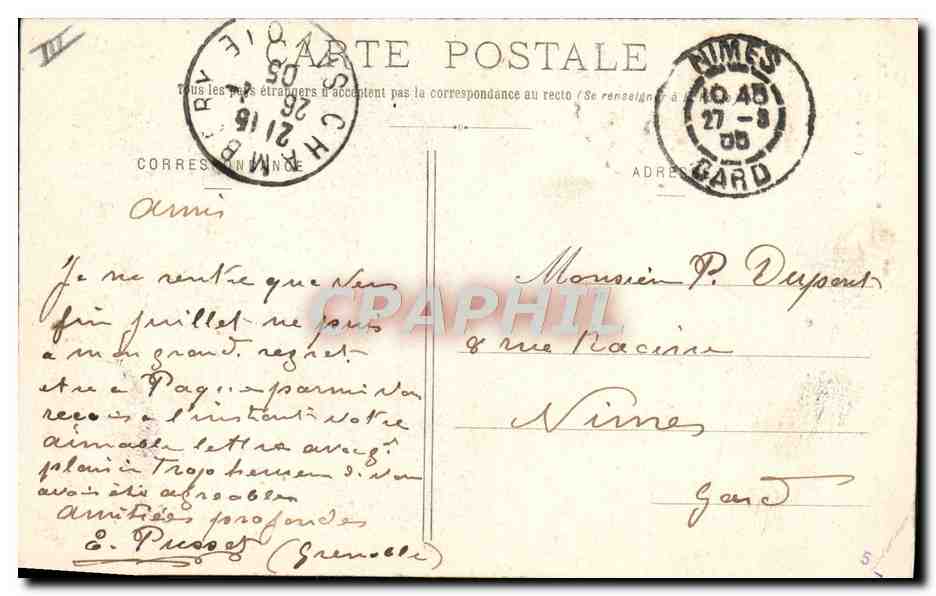 III
CARTE POSTALE
Tous les pays étrangers n'acceptent pas la correspondance au recto (Se renseigner à
CHAMBERY SAVOIE
21 15
26
05
NIMES
10 45
27 -3
05
GARD
CORRESPONDANCE
ADRES
amis
Je ne rentre que vers
fin juillet ne puis
a mon grand regret
etre a Paques parmi vous
reçois a l'instant votre
aimable lettre avec gd
plaisir Trop heureux d. vous
avoir été agreable
amitiées profondes
E. (Grenoble)
Monsieur P. Dupont
8 rue Racine
Nimes
Gard
CPAPHIL
5